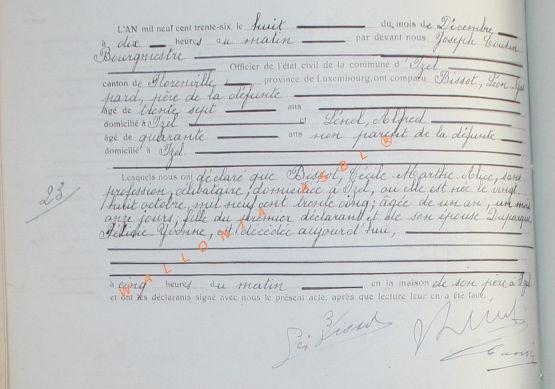 L'AN mil neuf cent trente-six, le huit du mois de Décembre
à dix heures du matin par devant nous Joseph
Bourgmestre
Officier de l'état civil de la commune d'Izel
canton de Florenville, province de Luxembourg, ont comparu Bissot, Léon
père de la défunte
âgé de trente sept ans
domicilié à Izel & Lénel, Alfred
âgé de quarante ans non parent de la défunte
domicilié à Izel
Lesquels nous ont déclaré que Bissot, Cécile Marthe Alice, sans
profession, célibataire, domiciliée à Izel, où elle est née le vingt
huit octobre mil neuf cent trente cinq; âgée de un an, un mois
onze jours; fille du premier déclarant et de son épouse Duparque
Yvonne, est décédée aujourd'hui,
23
à cinq heures du matin en la maison de son père à Izel
et ont les déclarants signé avec nous le présent acte, après que lecture leur en a été faite.
WALLONIA ASBL ®